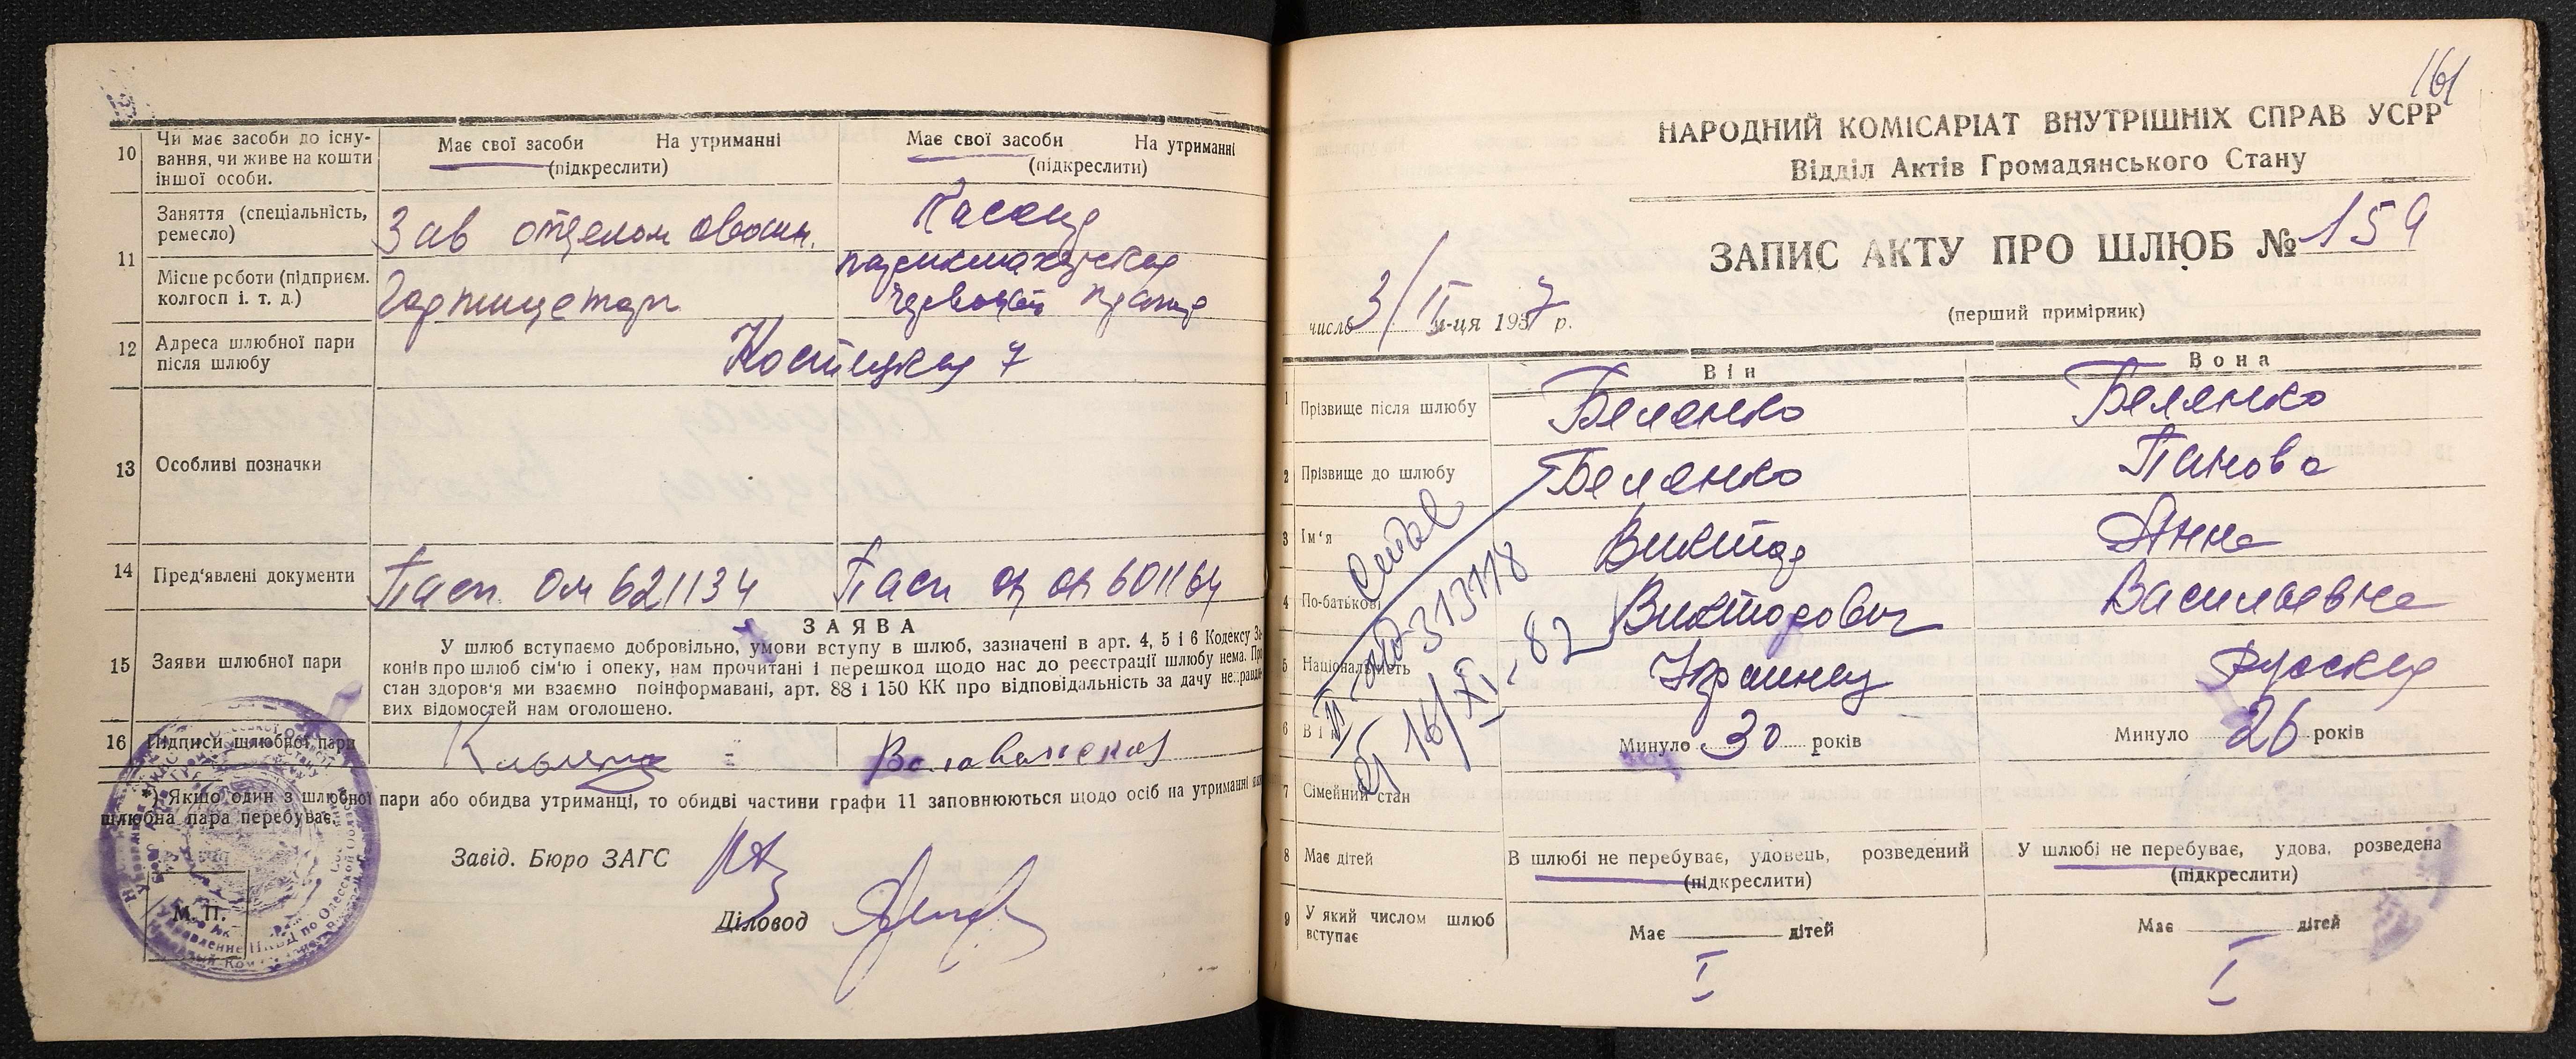 10 Чи має засоби до існу-
вання, чи живе на кошти
іншої особи.
Має свої засоби На утриманні
(підкреслити)
Має свої засоби На утриманні
(підкреслити)
11 Заняття (спеціальність,
ремесло)
Зав отделом овощн.
Кассир
Місце роботи (підприєм.
колгосп і. т. д.)
парикмахерская
12 Адреса шлюбної пари
після шлюбу
7
13 Особливі позначки
14 Пред'явлені документи
Пасп. ОМ 621134
Пасп 601164
15 Заяви шлюбної пари
ЗАЯВА
У шлюб вступаємо добровільно, умови вступу в шлюб, зазначені в арт. 4, 5 і 6 Кодексу За-
конів про шлюб сім'ю і опеку, нам прочитані і перешкод щодо нас до реєстрації шлюбу нема. Про
стан здоров'я ми взаємно поінформавані, арт. 88 і 150 КК про відповідальність за дачу неправди-
вих відомостей нам оголошено.
16 Підписи шлюбної пари
*) Якщо один з шлюбної пари або обидва утриманці, то обидві частини графи 11 заповнюються щодо осіб на утриманні яких
шлюбна пара перебуває.
Завід. Бюро ЗАГС
Діловод
М. П.
161
НАРОДНИЙ КОМІСАРІАТ ВНУТРІШНІХ СПРАВ УСРР
Відділ Актів Громадянського Стану
ЗАПИС АКТУ ПРО ШЛЮБ № 159
(перший примірник)
число 3/II м-ця 1937 р.
Він Вона
1 Прізвище після шлюбу Беленко Беленко
2 Прізвище до шлюбу Беленко Панова
3 Ім'я Виктор Анна
4 По-батькові Викторович Васильевна
5 Національність Украинец Русская
6 Вік Минуло 30 років Минуло 26 років
7 Сімейний стан
8 Має дітей
В шлюбі не перебуває, удовець, розведений
(підкреслити)
У шлюбі не перебуває, удова, розведена
(підкреслити)
9 У який числом шлюб
вступає
Має дітей Має дітей
I I
313118
16/XI-82